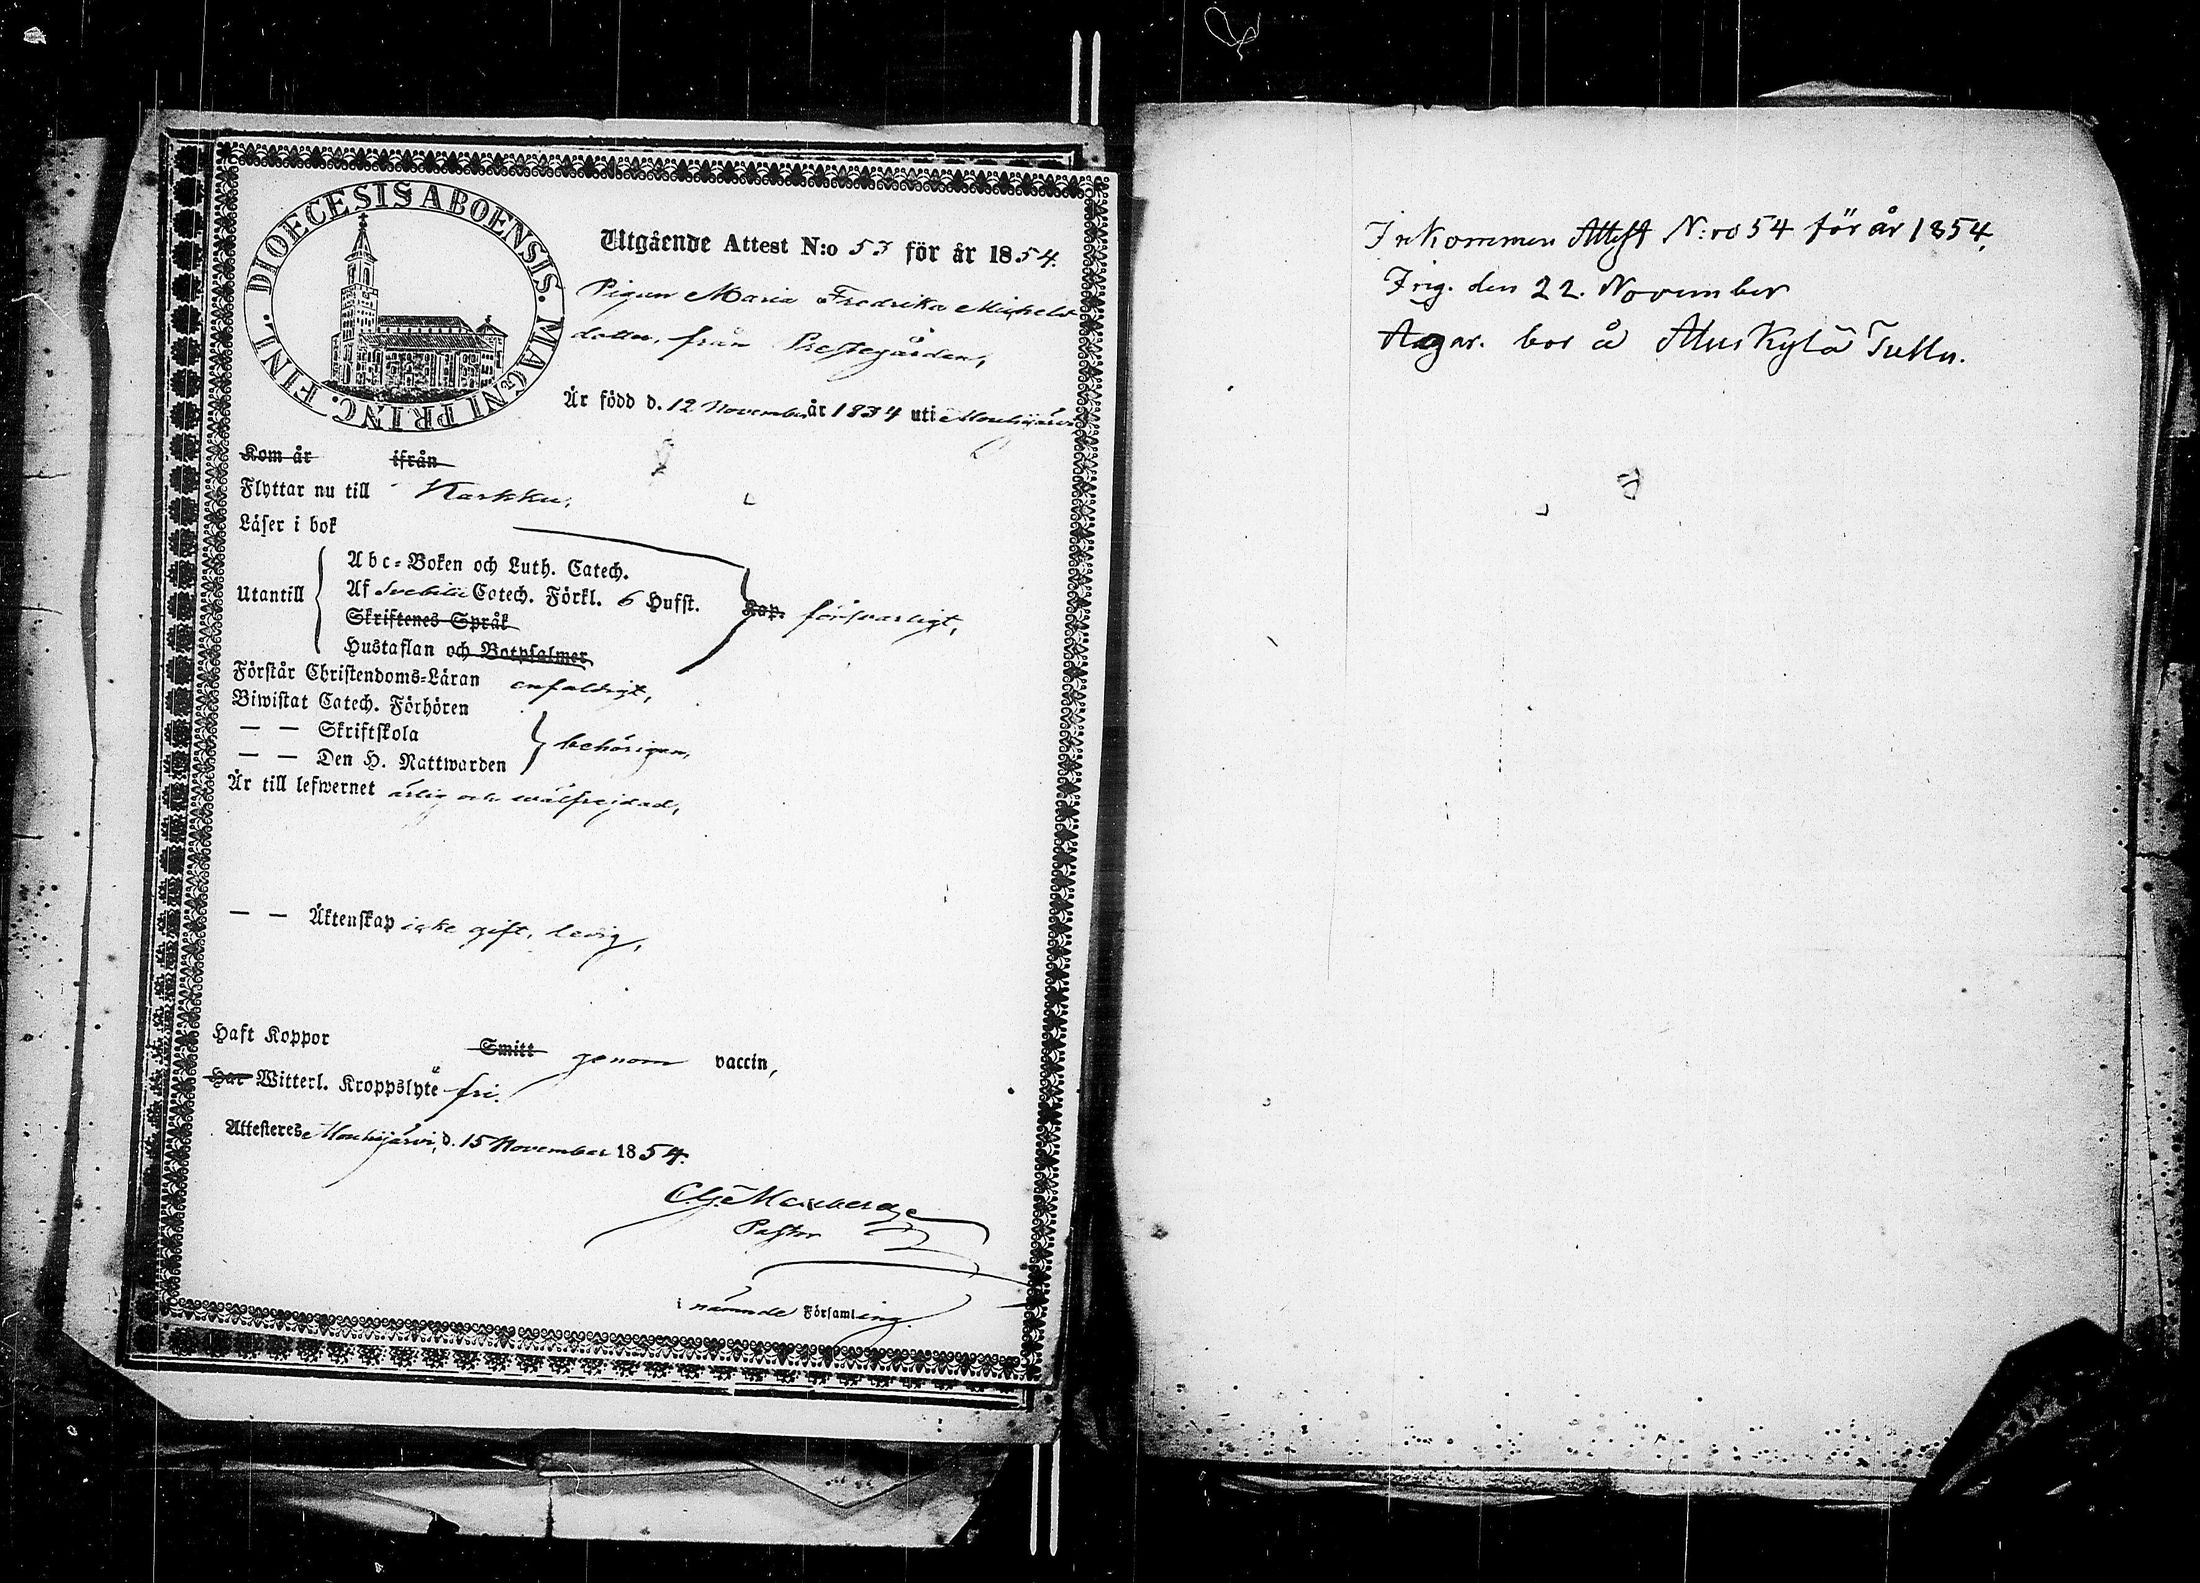 DIOECESIS ABOENSIS. MAGNI PRINC. FINL.
Utgående Attest N:o 53 för år 1854.
Pigan Maria Fredrika Michels
dotter, från Prestegården,
Är född d. 12 November år 1834 uti Mouhijärvi
Kom år ifrån
Flyttar nu till Karkku,
Läser i bok
Utantill
Abc-Boken och Luth. Catech.
Af Svebilii Catech. Förkl. 6 Hufst.
Kap. försvarligt,
Skriftenes Språk
Hustaflan och Botpsalmer
Förstår Christendoms-Läran enfaldigt,
Biwistat Catech. Förhören
— — Skriftskola
behörigen,
— — Den H. Nattwarden
Är till lefwernet ärlig och wälfrejdad,
— — Äktenskap icke gift, ledig,
Haft Koppor Smitt genom vaccin,
Har Witterl. Kroppslyte fri.
Attesteres Mouhijärvi, d. 15 November 1854.
Pastor
i nämnde Församling.
Inkommen Attest N:ro 54 för år 1854.
den 22. November
bor å